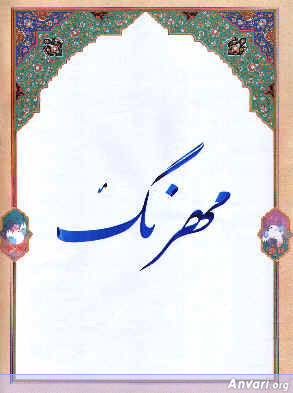 مهرنگ
Anvari.org